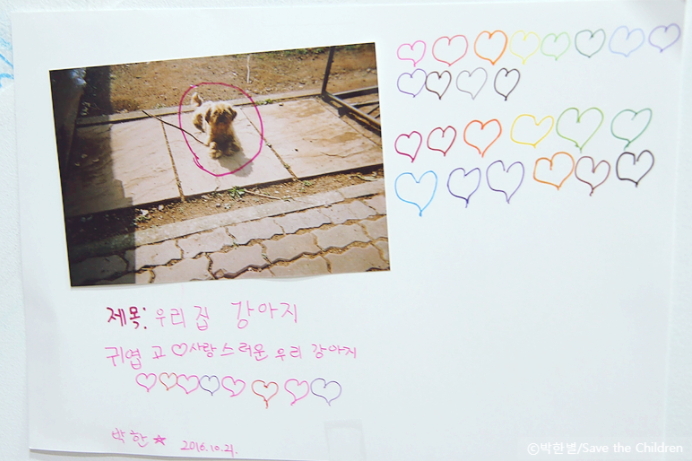 제목: 우리 집 강아지
귀엽고 ♡사랑스러운 우리 강아지
박한★ 2016.10.21.
©박한별/Save the Children